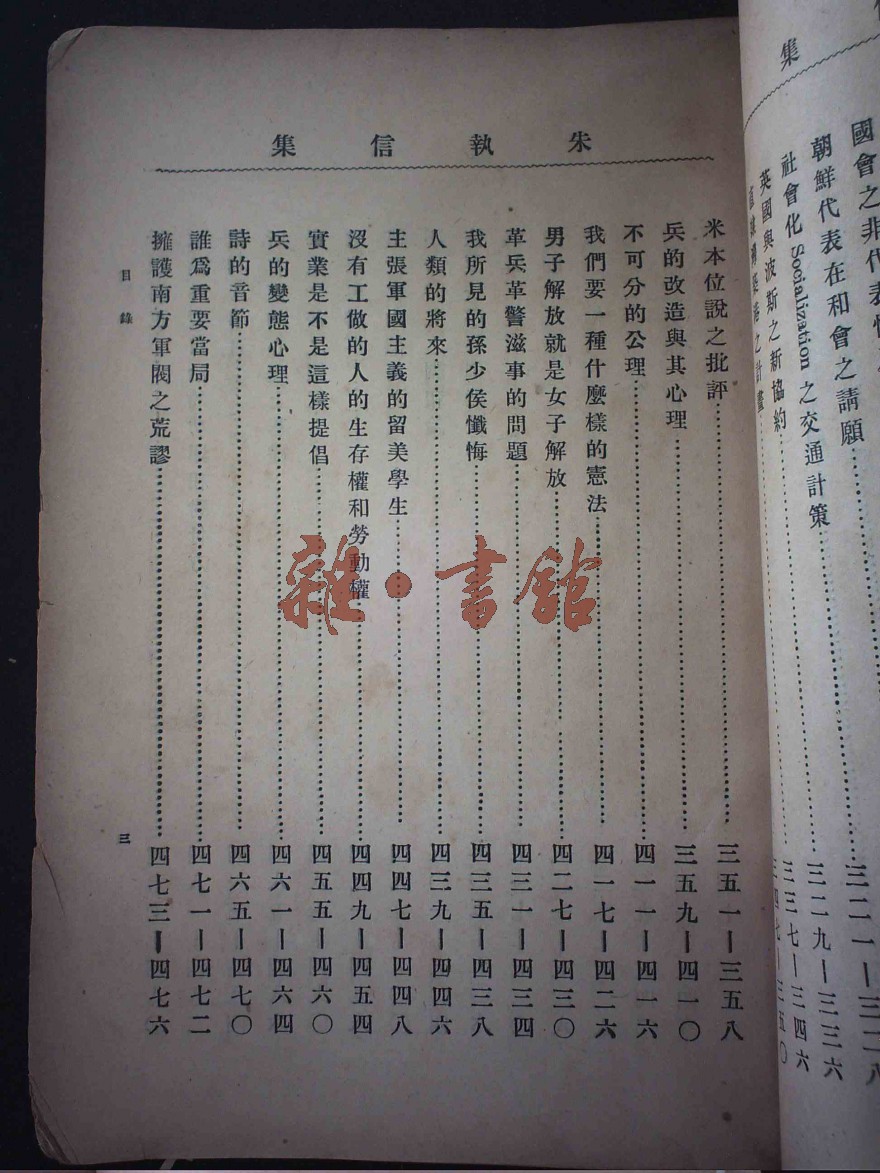 集
國會之非代表
朝鮮代表在和會之請願……三二九—三三六
社會化 Socialization 之交通計策……三三七—三四六
英國與波斯之新協約……三四七—三五〇
之計畫
朱執信集
米本位說之批評……三五一—三五八
兵的改造與其心理……三五九—四一〇
不可分的公理……四一一—四一六
我們要一種什麼樣的憲法……四一七—四二六
男子解放就是女子解放……四二七—四三〇
革兵革警滋事的問題……四三一—四三四
我所見的孫少侯懺悔……四三五—四三八
人類的將來……四三九—四四六
主張軍國主義的留美學生……四四七—四四八
沒有工做的人的生存權和勞動權……四四九—四五四
實業是不是這樣提倡……四五五—四六〇
兵的變態心理……四六一—四六四
詩的音節……四六五—四七〇
誰爲重要當局……四七一—四七二
擁護南方軍閥之荒謬……四七三—四七六
目錄
三
雜·書館